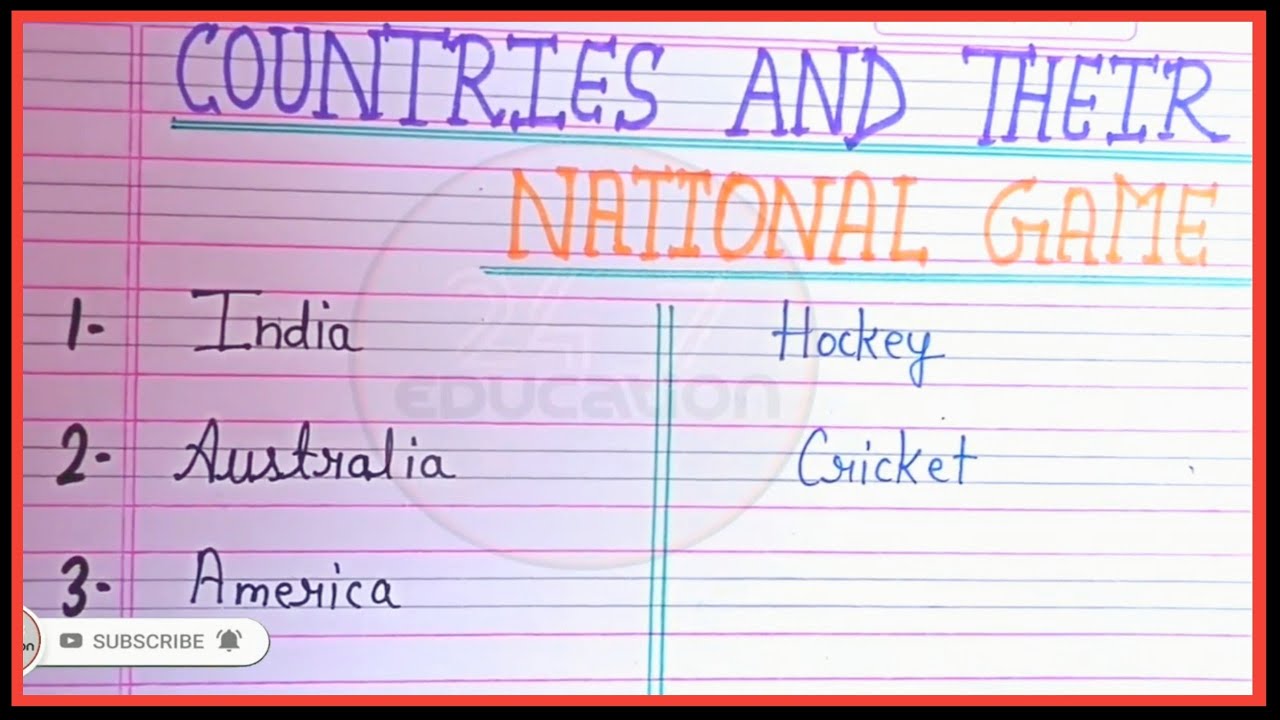 COUNTRIES AND THEIR
NATIONAL GAME
1- India Hockey
2- Australia Cricket
3- America
24 7
EDUCATION
SUBSCRIBE